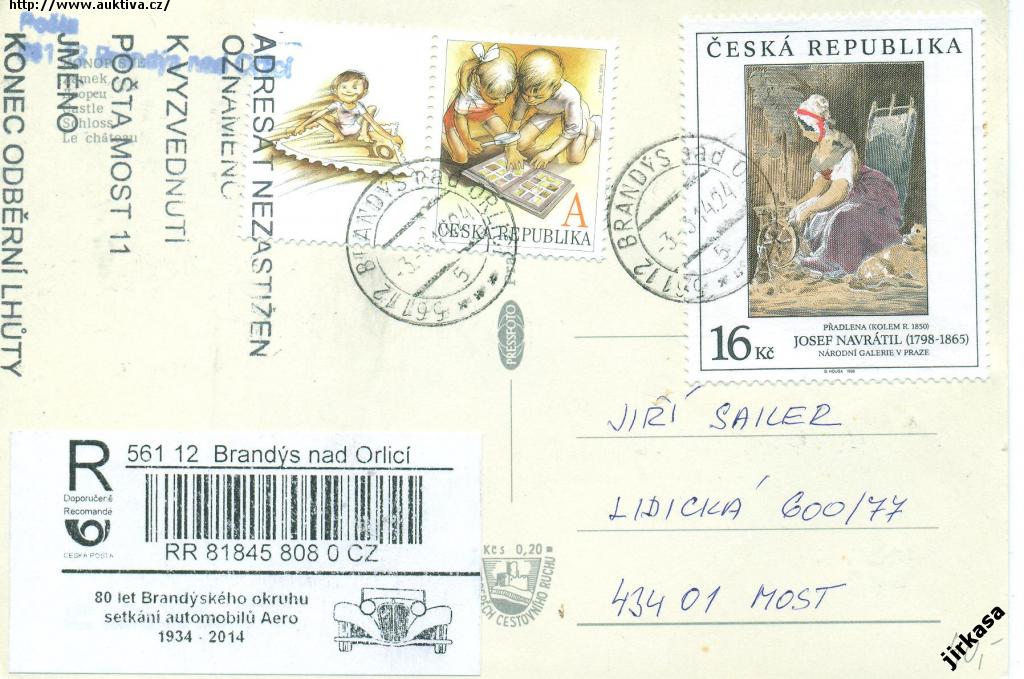 http://www.auktiva.cz/
Pošta
561 12 Brandýs nad Orlicí
KONOPIŠTĚ
Zámek
Castle
Schloss
Le château
ADRESÁT NEZASTIŽEN
OZNÁMENO
K VYZVEDNUTÍ
POŠTA MOST 11
JMÉNO
KONEC ODBĚRNÍ LHŮTY
A
ČESKÁ REPUBLIKA
561 12 BRANDÝS nad ORLICÍ
5
561 12 BRANDÝS nad O
-3.3.14.24
5
ČESKÁ REPUBLIKA
PŘADLENA (KOLEM R. 1850)
16 Kč JOSEF NAVRÁTIL (1798-1865)
NÁRODNÍ GALERIE V PRAZE
PRESSFOTO
JIŘÍ SAILER
LIDICKÁ 600/77
434 01 MOST
R 561 12 Brandýs nad Orlicí
Doporučeně
Recomandé
ČESKÁ POŠTA
RR 81845 808 0 CZ
80 let Brandýského okruhu
setkání automobilů Aero
1934 - 2014
Kčs 0,20
CESTOVNÍHO RUCHU
jirkasa